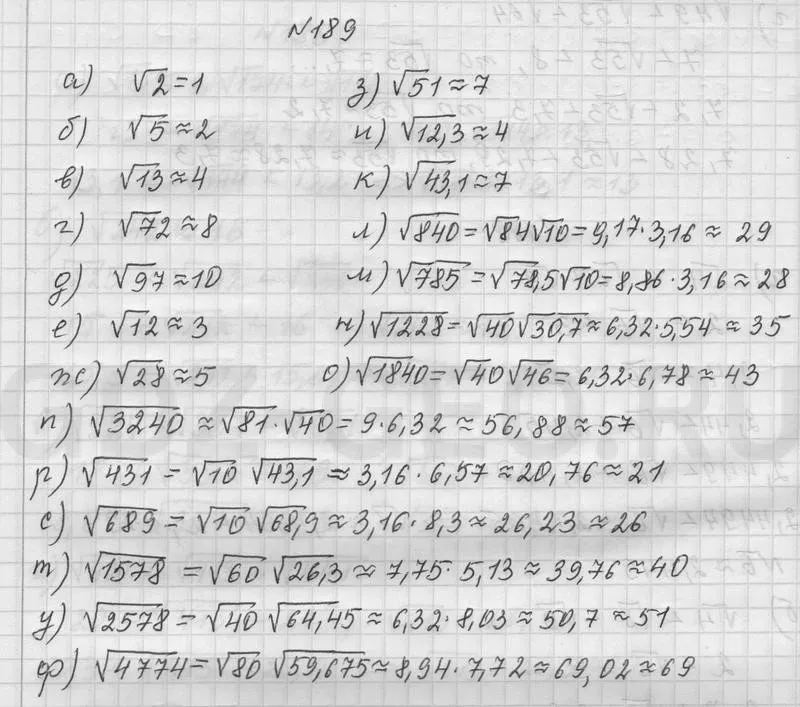 №189
а) √2=1
з) √51≈7
б) √5≈2
и) √12,3≈4
в) √13≈4
к) √43,1≈7
г) √72≈8
л) √840=√84√10=9,17·3,16≈ 29
д) √97≈10
м) √785=√78,5√10=8,86·3,16≈28
е) √12≈3
н) √1228=√40√30,7≈6,32·5,54≈35
ж) √28≈5
о) √1840=√40√46=6,32·6,78≈43
п) √3240≈√81·√40=9·6,32≈56,88≈57
р) √431=√10 √43,1≈3,16·6,57≈20,76≈21
с) √689=√10 √68,9≈3,16·8,3≈26,23≈26
т) √1578=√60 √26,3≈7,75·5,13≈39,76≈40
у) √2578=√40 √64,45≈6,32·8,03≈50,7≈51
ф) √4774=√80 √59,675≈8,94·7,72≈69,02≈69